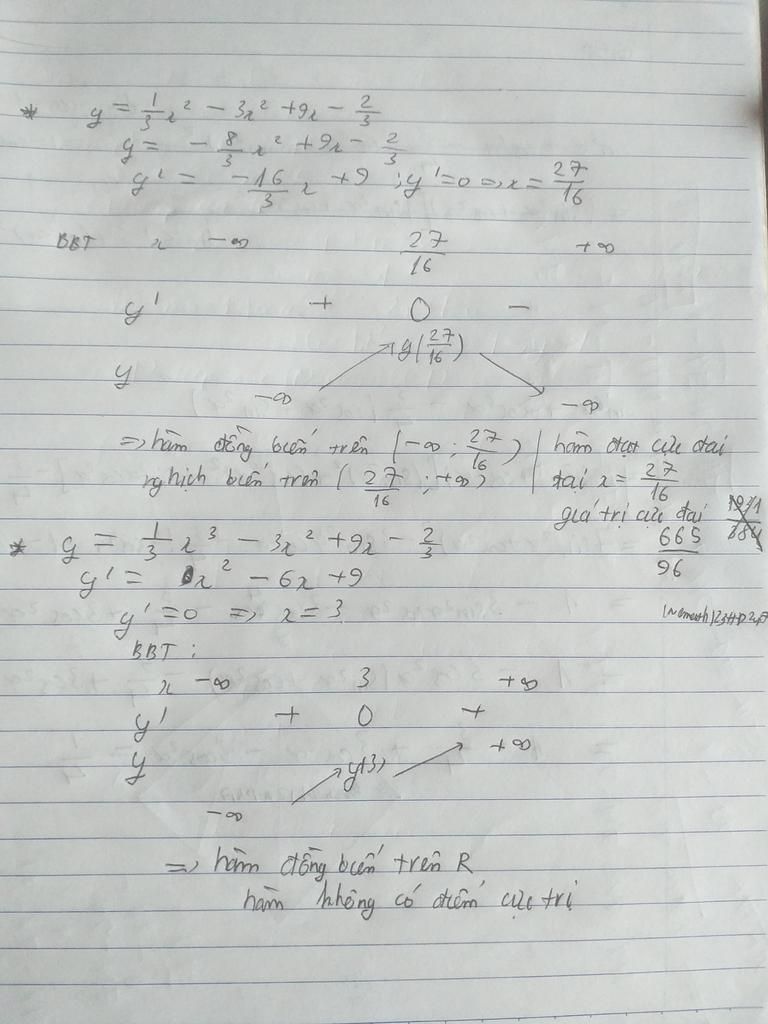 * y = 1/3 x² - 3x² + 9x - 2/3
y = - 8/3 x² + 9x - 2/3
y' = -16/3 x + 9 ; y' = 0 => x = 27/16
BBT x -∞ 27/16 +∞
y' + 0 -
y(27/16)
y
-∞ -∞
=> hàm đồng biến trên (-∞ ; 27/16) | hàm đạt cực đại
nghịch biến trên (27/16 ; +∞) | đại x = 27/16
giá trị cực đại 665/96
* y = 1/3 x³ - 3x² + 9x - 2/3
y' = x² - 6x + 9
y' = 0 => x = 3
BBT :
x -∞ 3 +∞
y' + 0 +
y y(3) +∞
-∞
=> hàm đồng biến trên R
hàm không có điểm cực trị